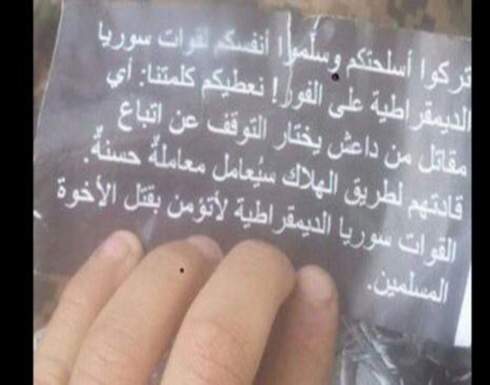 تركوا أسلحتكم وسلموا أنفسكم لقوات سوريا
الديمقراطية على الفور! نعطيكم كلمتنا: أي
مقاتل من داعش يختار التوقف عن اتباع
قادتهم لطريق الهلاك سيُعامل معاملةً حسنةً.
القوات سوريا الديمقراطية لأتؤمن بقتل الأخوة
المسلمين.